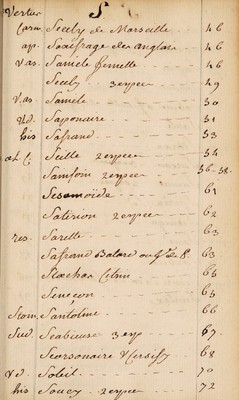 S
Vertus
Carm. Secely de Marseille 46
ap. Saxifrage des anglais 46
vas. Saniele femelle 46
Secely 3 espece 49
v.as Saniele 50
Ad. Saponaire 51
his Safrand 53
Scille 2 espece 54
Samfoin 2 espece 56-58
Sesamoïde 61
Satirion 2 espece 62
res. Sarette 63
Safrand Batard ou 63
Stæchas Citrin 65
Seneçon 65
Stom. Santoline 66
Sud. Scabieuse 3 esp 67
Scorsonaire 68
vd. Soleil 70
his Soucy 2 espece 72